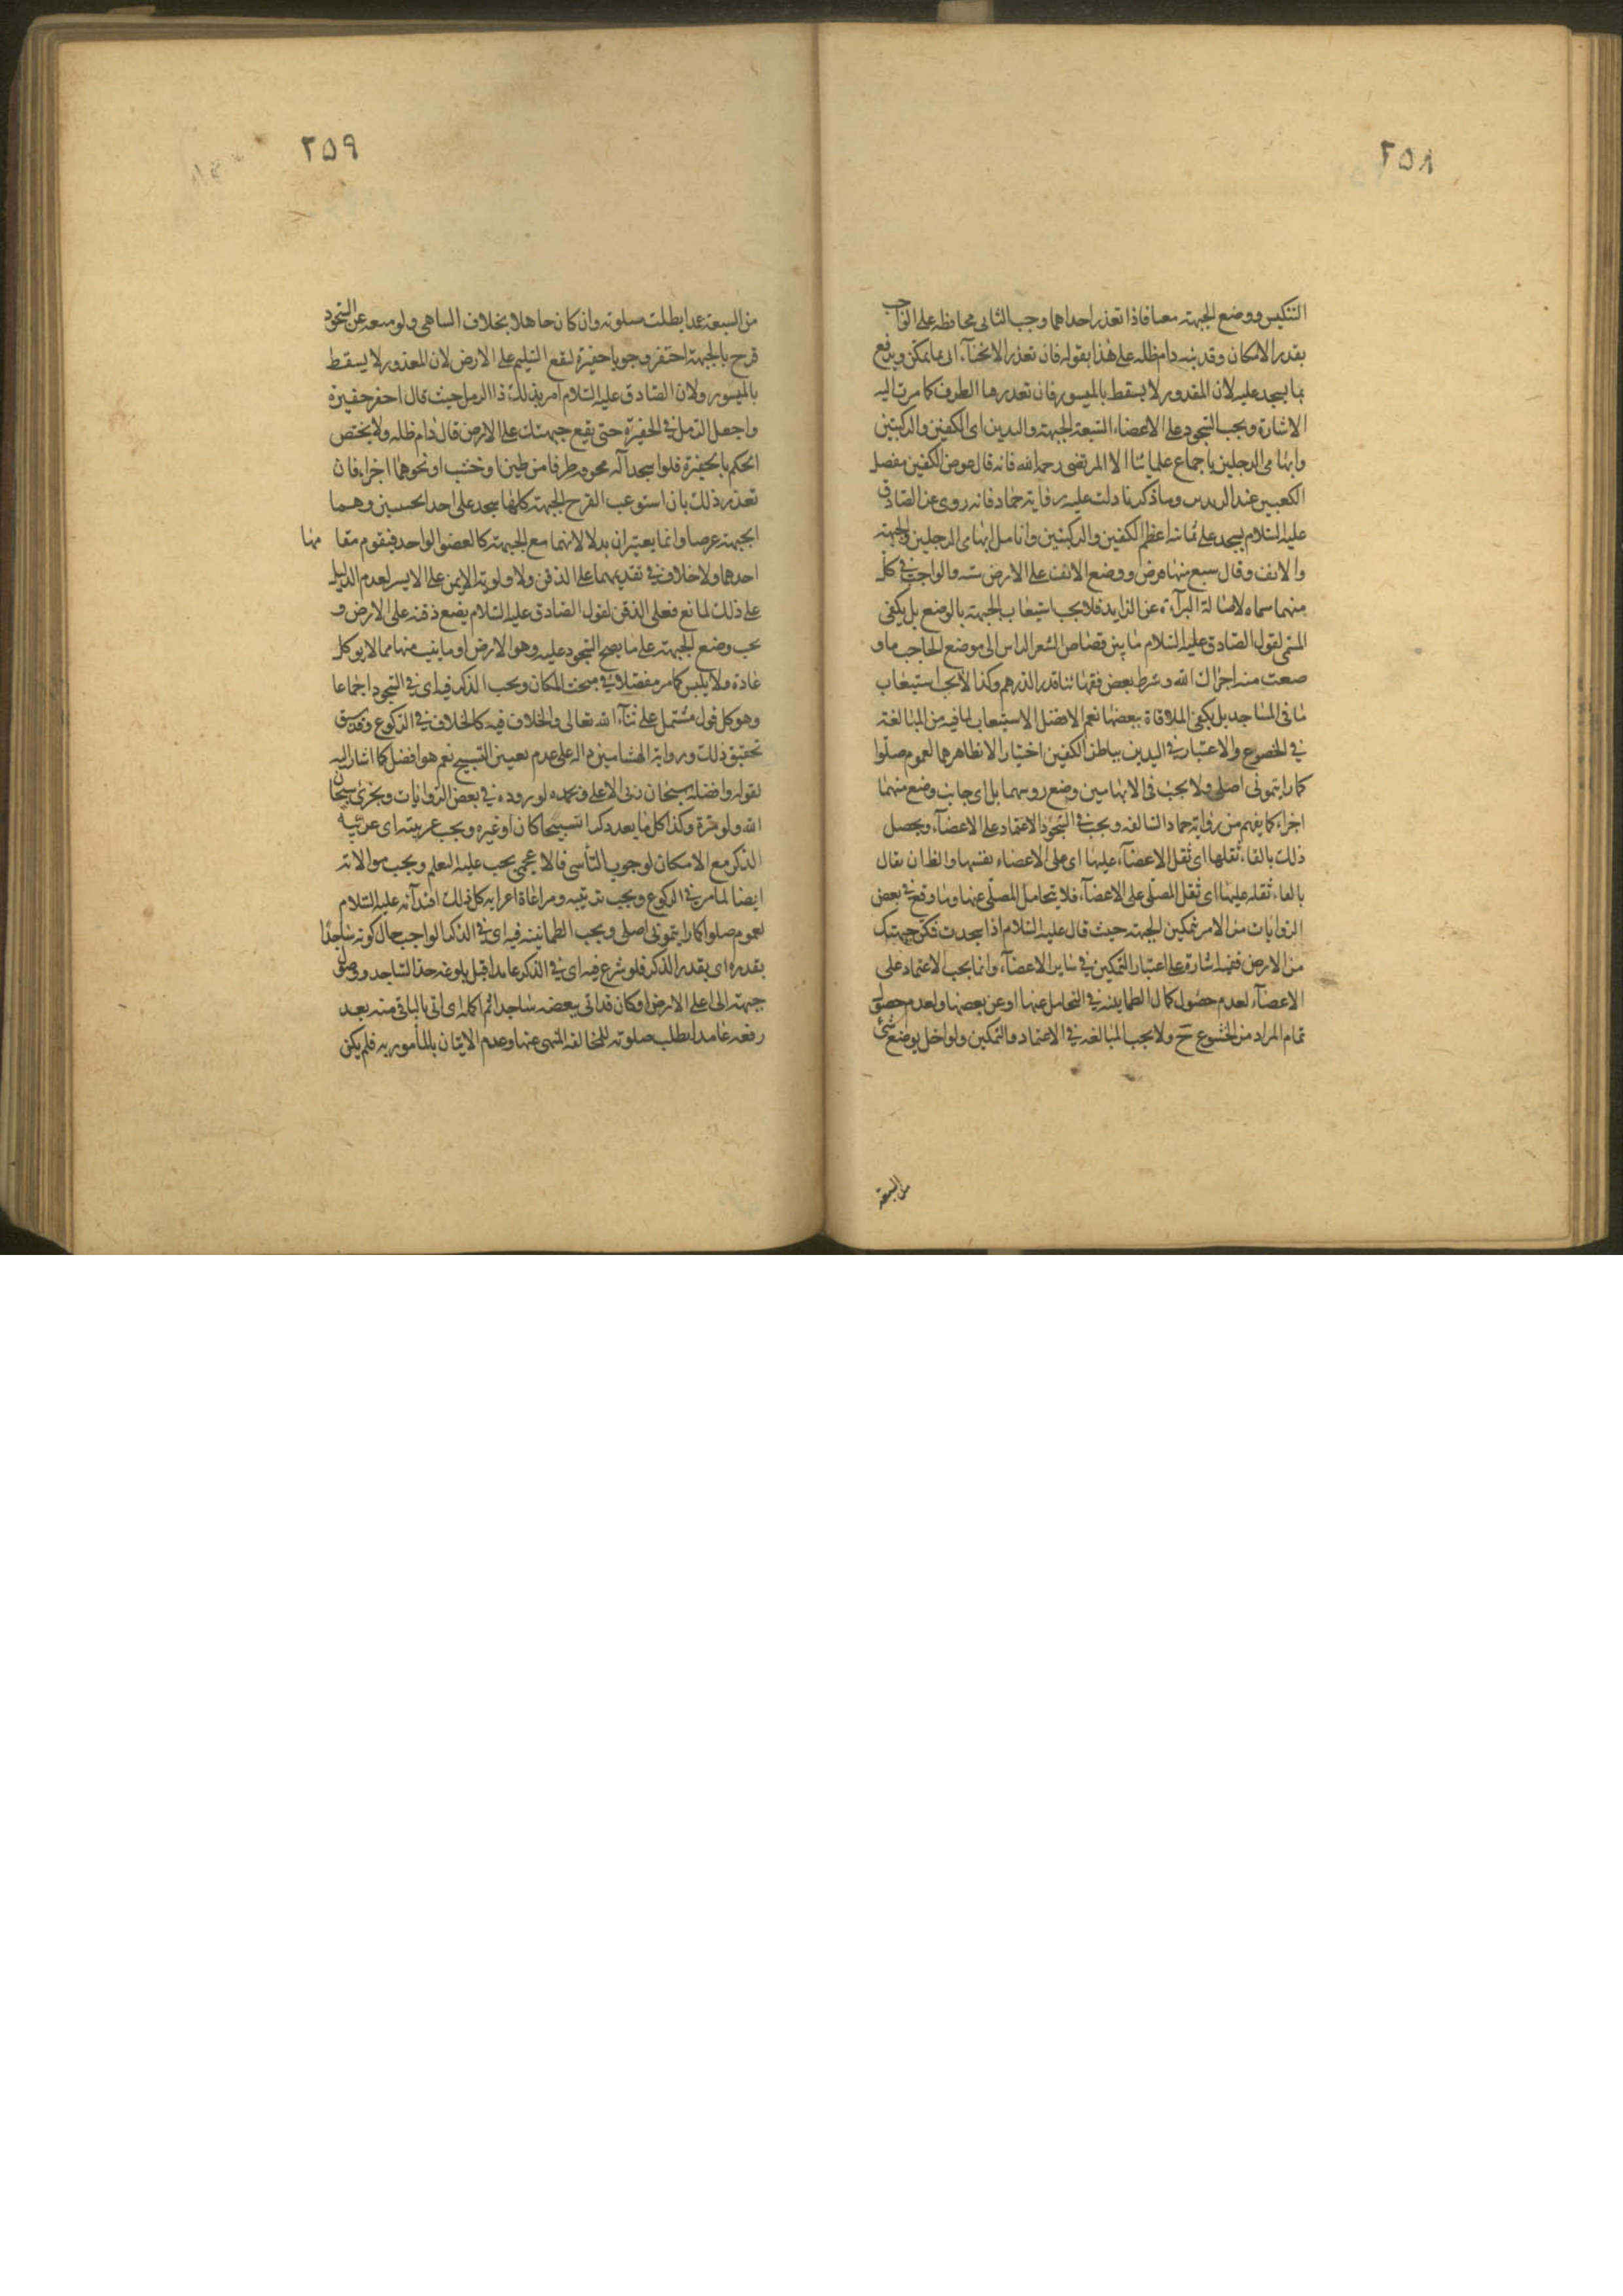 ٢٥٨
التنكيس ووضع الجبهة معا فاذا تعذر احداهما وجب الثانى محافظة على الواجب
بقدر الامكان وقد نبه دام ظله على هذا بقوله فان تعذر الانحناء اتى بما يمكن ويرفع
ما يسجد عليه لان المقدور لا يسقط بالميسور فان تعذرها الطرف كما مرت اليه
الاشارة ويجب السجود على الاعضاء السبعة الجبهة واليدين اى الكفين والركبتين
وابهامى الرجلين باجماع علمائنا الا المرتضى رحمه الله فانه قال عوض الكفين مفصل
الكعبين عند الزندين وما ذكرنا دلت عليه رواية حماد فانه روى عن الصادق
عليه السلام يسجد على ثمانية اعظم الكفين والركبتين وانامل ابهامى الرجلين والجبهة
والانف وقال سبع منها فرض ووضع الانف على الارض سنة والواجب فى كل
منهما مسماه لاصالة البراءة عن الزايد فلا يجب استيعاب الجبهة بالوضع بل يكفى
المسمى لقول الصادق عليه السلام ما بين قصاص الشعر الراس الى موضع الحاجب ما و
ضعت منه اجزاك الله وشرط بعض فقهائنا قدر الدرهم وكذا لا يجب استيعاب
ما فى المساجد بل يكفى الملاقاة ببعضها نعم الافضل الاستيعاب لما فيه من المبالغة
فى الخضوع والاعتبار فى اليدين بباطن الكفين اختيارا لا بظاهرهما لعموم صلوا
كما رايتمونى اصلى ولا يجب فى الابهامين وضع روسهما بل اى جانب وضع منهما
اجزاء كما يفهم من رواية حماد السالفة ويجب فى السجود الاعتماد على الاعضاء ويحصل
ذلك بالقاء ثقلها اى ثقل الاعضاء عليها اى على الاعضاء بفسها والظ ان يقال
بالقاء ثقله عليها اى ثقل المصلى على الاعضاء فلا يتحامل المصلى عنها وما وقع فى بعض
الروايات من الامر بتمكين الجبهة حيث قال عليه السلام اذا سجدت فمكن جبهتك
من الارض ففيه اشارة على اعتبار التمكين فى ساير الاعضاء وانما يجب الاعتماد على
الاعضاء لعدم حصول كمال الطمانينة فى التحامل عنها او عن بعضها ولعدم حصول
تمام المراد من الخشوع ح ولا يجب المبالغة فى الاعتماد والتمكين ولو اخل بوضع شئ
من السبعة
٢٥٩
من السبعة عمدا بطلت صلوته وان كان جاهلا بخلاف الساهى ولو منعه عن السجود
قرح بالجبهة احتفر وجوبا حفيرة ليقع السليم على الارض لان المعذور لا يسقط
بالميسور ولان الصادق عليه السلام امر بذلك ذا الدمل حيث قال احفر حفيرة
واجعل الدمل فى الحفيرة حتى يقع جبهتك على الارض قال دام ظله ولا يختص
الحكم بالحفيرة فلو اسجد آلة مجوفة طرفا من طين او خشب او نحوهما اجزاء فان
تعذر ذلك بان استوعب القرح الجبهة كلها سجد على احد الجبينين وهما
الجبهة عرضا وانما يعتبران بدلا لانهما مع الجبهة كالعضو الواحد فيقوم مقامها
احدهما ولا خلاف فى تقديمهما على الذقن ولا اولوية للايمن على الايسر لعدم الدليل
على ذلك لمانع فعلى الذقن لقول الصادق عليه السلام يضع ذقنه على الارض و
يجب وضع الجبهة على ما يصح السجود عليه وهو الارض او ما ينبت منها مما لا يوكل
عادة ولا يلبس كما مر مفصلا فى مبحث المكان ويجب الذكر فيه اى فى السجود اجماعا
وهو كل قول مشتمل على ثناء الله تعالى والخلاف فيه كالخلاف فى الركوع وقد سبق
تحقيق ذلك ورواية الهشامين دالة على عدم تعيين التسبيح نعم هو افضل كما اشار اليه
بقوله وافضله سبحان ربى الاعلى وبحمده لوروده فى بعض الروايات ويجزئ سبحان
الله ولو مرة وكذا كل ما يعد ذكرا تسبيحا كان او غيره ويجب عربيته اى عربية
الذكر مع الامكان لوجوب التأسى فالاعجمى يجب عليه التعلم ويجب موالاته
ايضا لما مر فى الركوع ويجب ترتيبه ومراعاة اعرابه كل ذلك اقتداء به عليه السلام
لعموم صلوا كما رايتمونى اصلى ويجب الطمانينة فيه اى فى الذكر الواجب حال كونه ساجدا
بقدره اى بقدر الذكر فلو شرع فيه اى فى الذكر عامدا قبل بلوغه حد الساجد ووصول
جبهته الى اعلى الارض او كان قد اتى ببعضه ساجدا ثم اكمله اى اتى بالباقى منه بعد
رفعه عامدا بطلت صلوته للمخالفة المنهى عنها وعدم الاتيان بالمأمور به فلم يكن